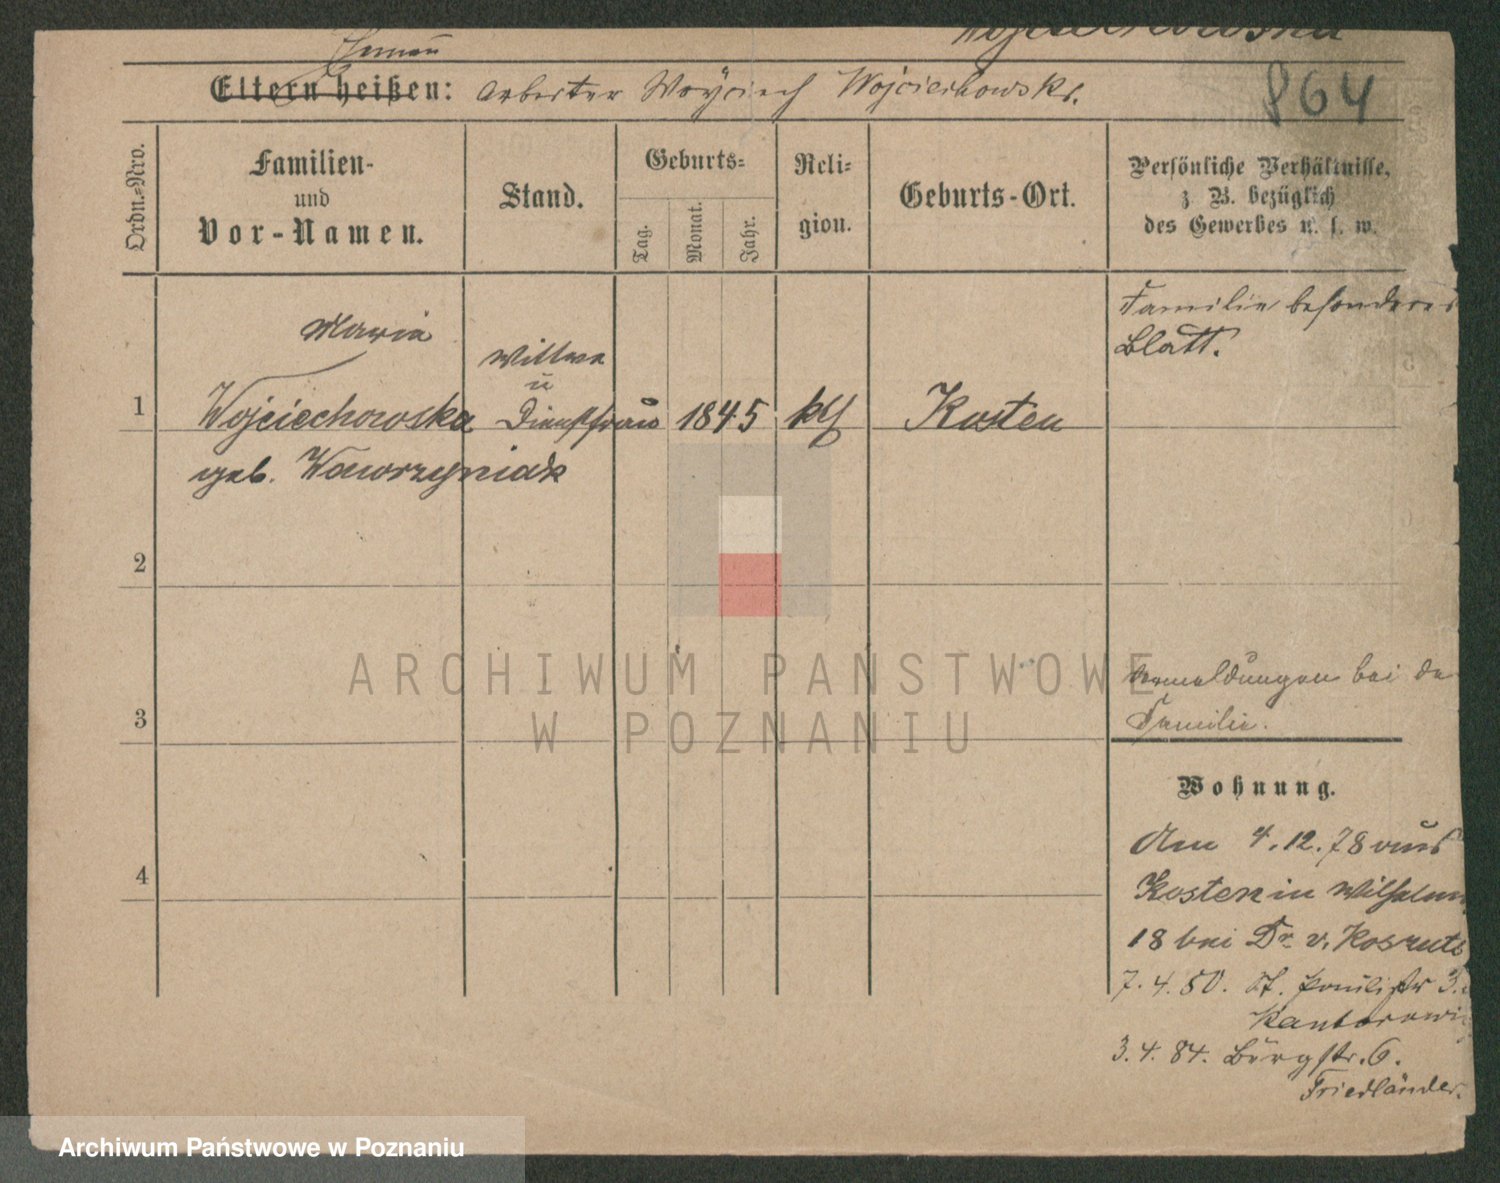 Wojciechowska
864
Ehemann
Eltern heißen: Arbeiter Woyciech Wojciechowski.
Ordn.=Nro.
Familien-
und
Vor-Namen.
Stand.
Geburts=
Tag.
Monat.
Jahr.
Reli=
gion.
Geburts-Ort.
Persönliche Verhältnisse,
z. B. bezüglich
des Gewerbes u. s. w.
Familie besonderes
Blatt.
Maria
Wittwe
u
1 Wojciechowska Dienstfrau 1845 kth Kosten
geb. Wawrzyniak
2
3
4
bei
Familie.
Wohnung.
Am 4.12.78 aus
Kosten in Wilhelm
18 bei Dr. v. Koszuts
7.4.80. St. Paulistr 3.
Kantorowi
3.4.84. Bürgstr. 6.
Friedländer.
ARCHIWUM PAŃSTWOWE
W POZNANIU
Archiwum Państwowe w Poznaniu